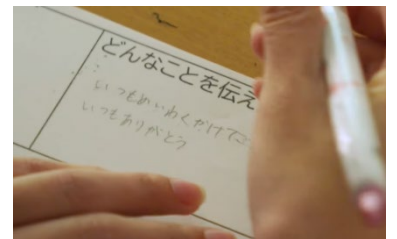 どんなことを伝え
いつもめいわくかけてご
いつもありがとう